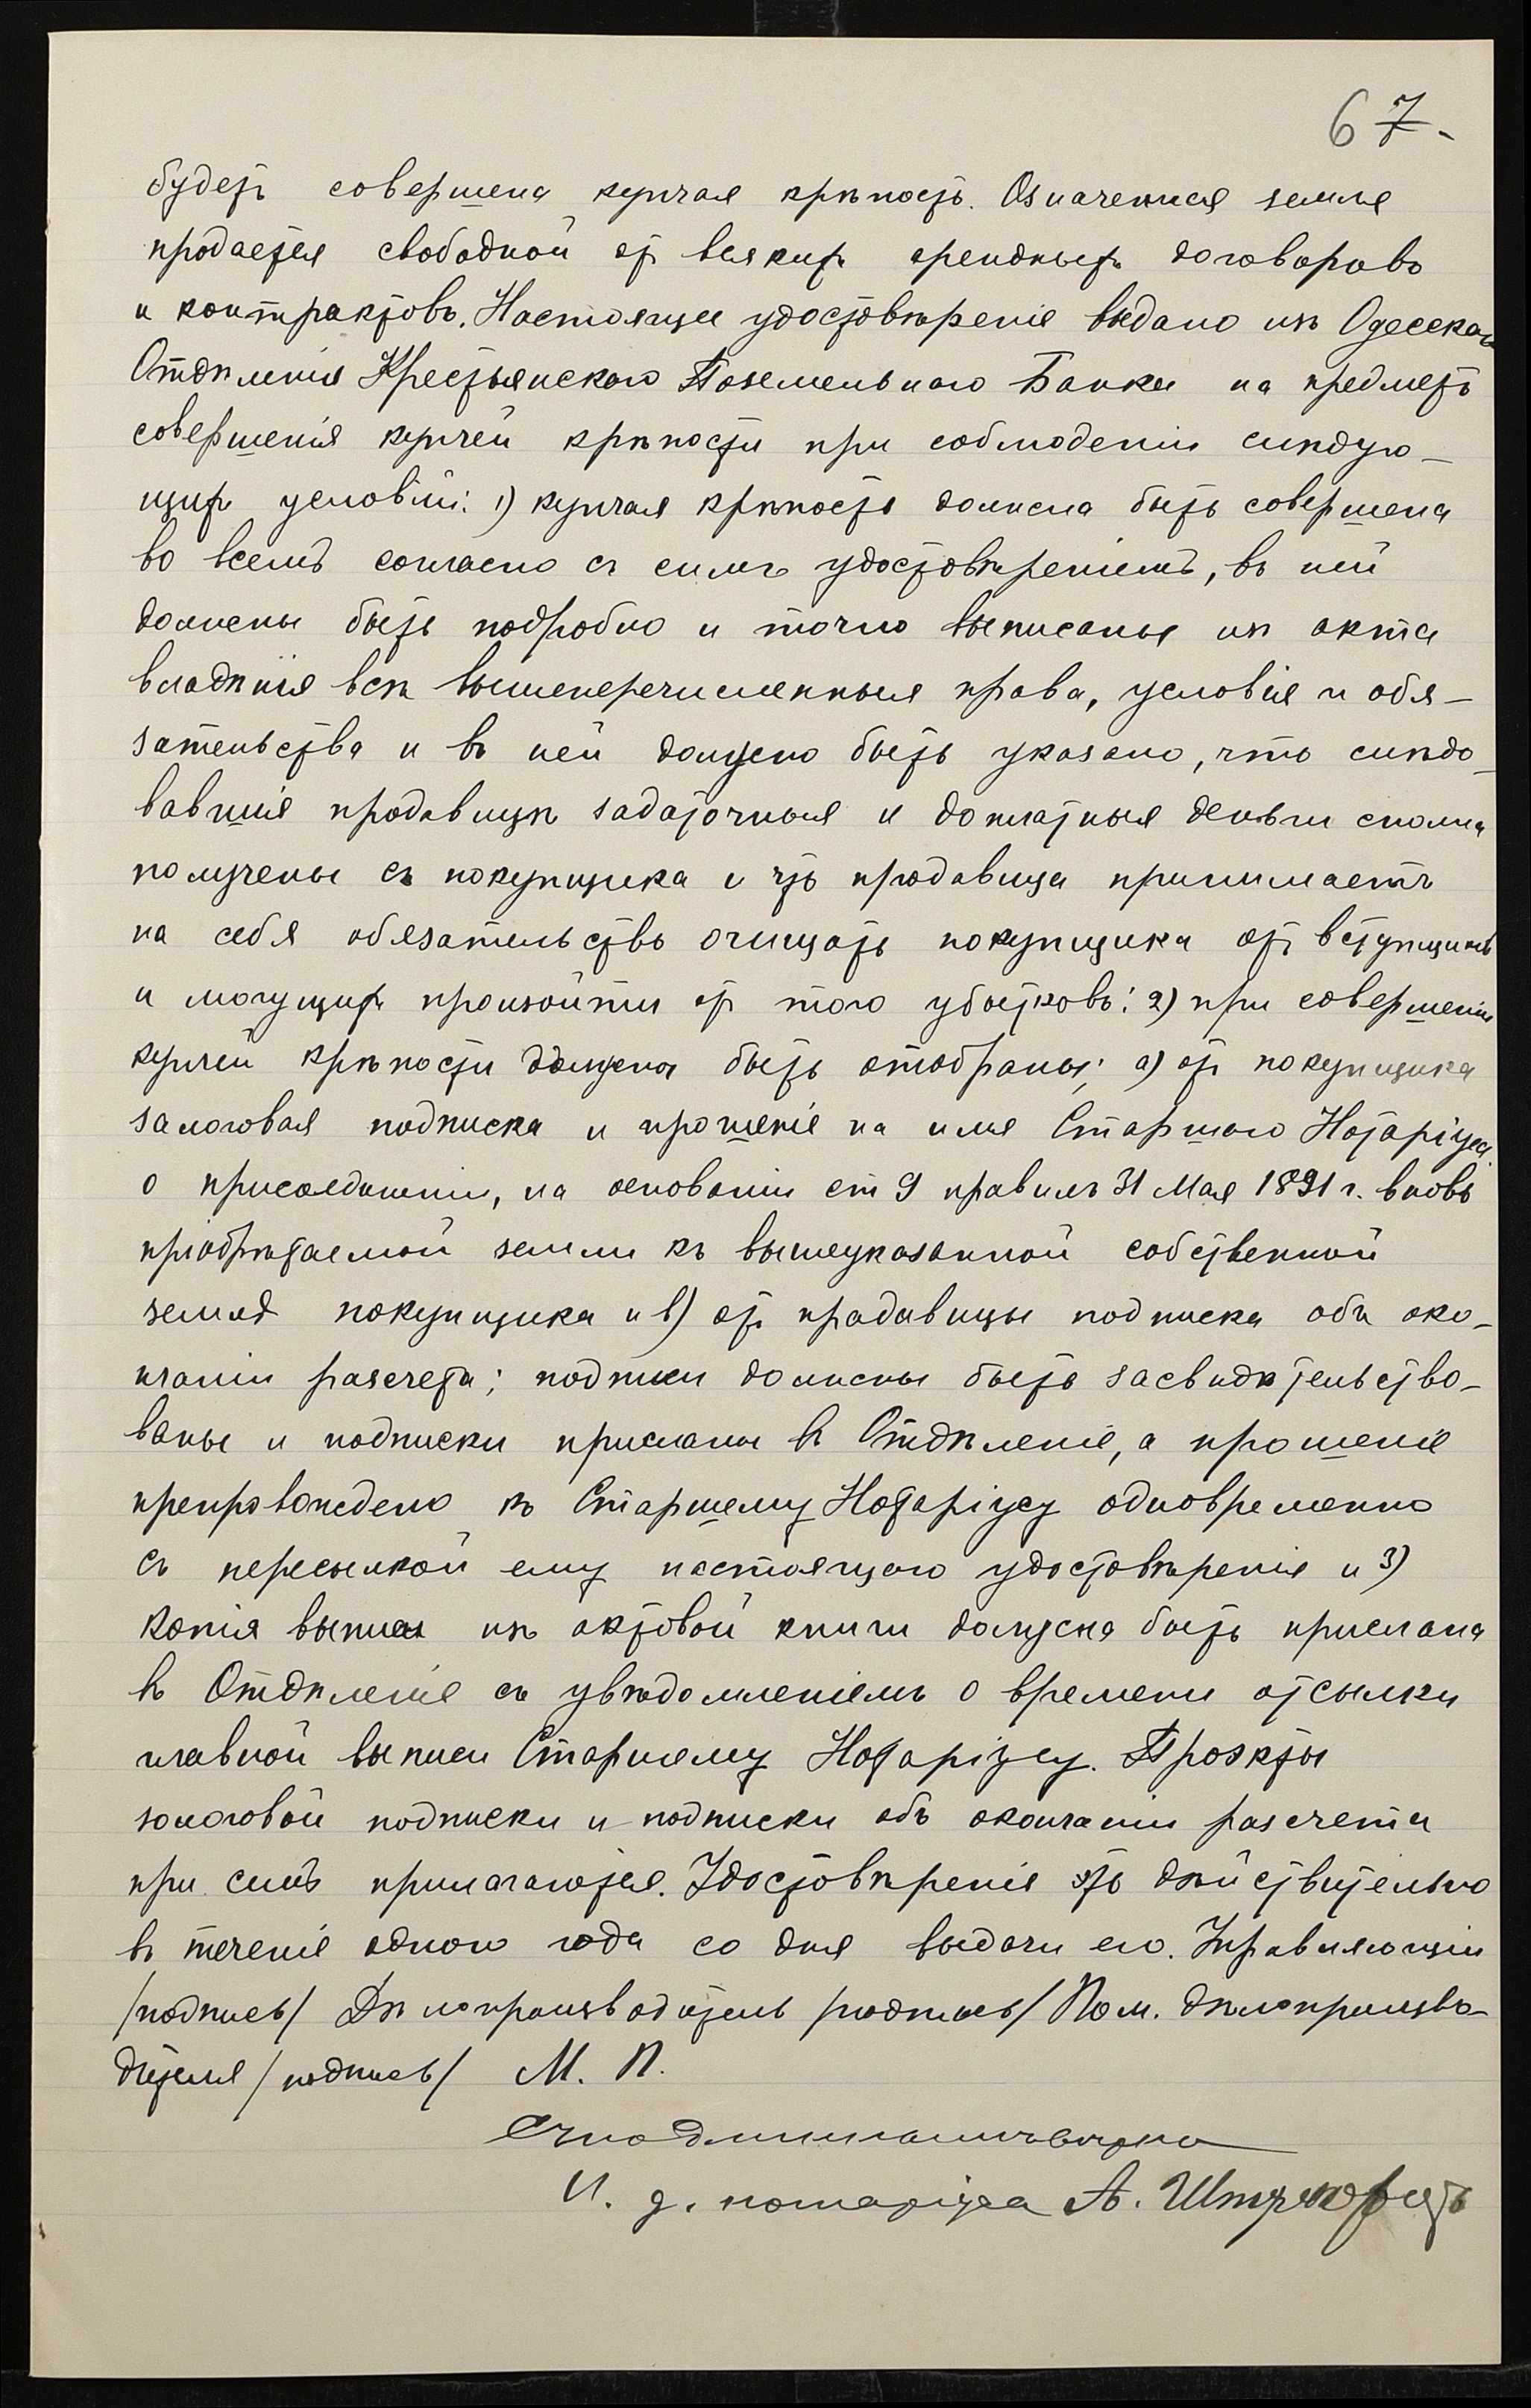 67.
будетъ совершена купчая крѣпость. Означенная земля
продается свободной отъ всякихъ арендныхъ договоровъ
и контрактовъ. Настоящее удостовѣреніе выдано изъ Одесскаго
Отдѣленія Крестьянскаго Поземельнаго Банка на предметъ
совершенія купчей крѣпости при соблюденіи слѣдую-
щихъ условій: 1) купчая крѣпость должна быть совершена
во всемъ согласно съ симъ удостовѣреніемъ, въ ней
должны быть подробно и точно выписаны изъ акта
владѣнія всѣ вышеперечисленныя права, условія и обя-
зательства и въ ней должно быть указано, что слѣдо-
вавшія продавицѣ задаточныя и доплатныя деньги сполна
получены съ покупщика и что продавица принимаетъ
на себя обязательство очищать покупщика отъ вступщиковъ
и могущихъ произойти отъ того убытковъ: 2) при совершеніи
купчей крѣпости должны быть отобраны: а) отъ покупщика
залоговая подписка и прошеніе на имя Старшаго Нотаріуса
о присоединеніи, на основаніи ст 9 правилъ 31 Мая 1891 г. вновь
пріобрѣтаемой земли къ вышеуказанной собственной
землѣ покупщика и в) отъ продавицы подписка объ око-
нчаніи разсчета; подписи должны быть засвидѣтельство-
ваны и подписки присланы въ Отдѣленіе, а прошеніе
препровождено къ Старшему Нотаріусу одновременно
съ пересылкой ему настоящаго удостовѣренія и 3)
копія выписи изъ актовой книги должна быть прислана
въ Отдѣленіе съ увѣдомленіемъ о времени отсылки
главной выписи Старшему Нотаріусу. Проэкты
залоговой подписки и подписки объ окончаніи разсчета
при семъ прилагаются. Удостовѣреніе это дѣйствительно
въ теченіе одного года со дня выдачи его. Управляющій
/подпись/ Дѣлопроизводитель /подпись/ Пом. дѣлопроизво-
дителя /подпись/ М. П.
Съ подлиннымъ вѣрно
И. д. нотаріуса А.